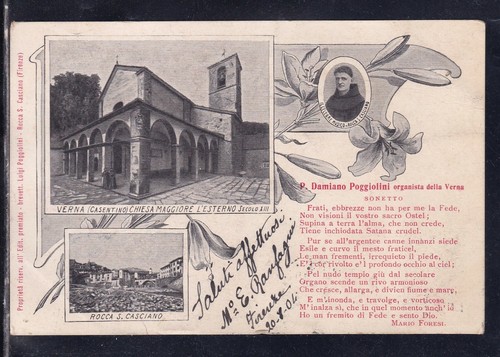 Proprietà riserv. all' Edit. premiato - brevett. Luigi Poggiolini - Rocca S. Casciano (Firenze)
VERNA (CASENTINO) CHIESA MAGGIORE L'ESTERNO SECOLO XIII
ROCCA S. CASCIANO
Saluti affettuosi
Mº E.
Firenze
P. Damiano Poggiolini organista della Verna
SONETTO
Frati, ebbrezze non ha per me la Fede,
Non visioni il vostro sacro Ostel;
Supina a terra l'alma, che non crede,
Tiene inchiodata Satana crudel.
Pur se all'argentee canne innanzi siede
Esile e curvo il mesto fraticel,
Le man frementi, irrequieto il piede,
E le rivolto e'l profondo occhio al ciel;
Pel nudo tempio giù dal secolare
Organo scende un rivo armonioso
Che cresce, allarga, e divien fiume e mar;
E m'inonda, e travolge, e vorticoso
M'inalza sì, che in quel momento
Ho un fremito di Fede e sento Dio.
MARIO FORESI.